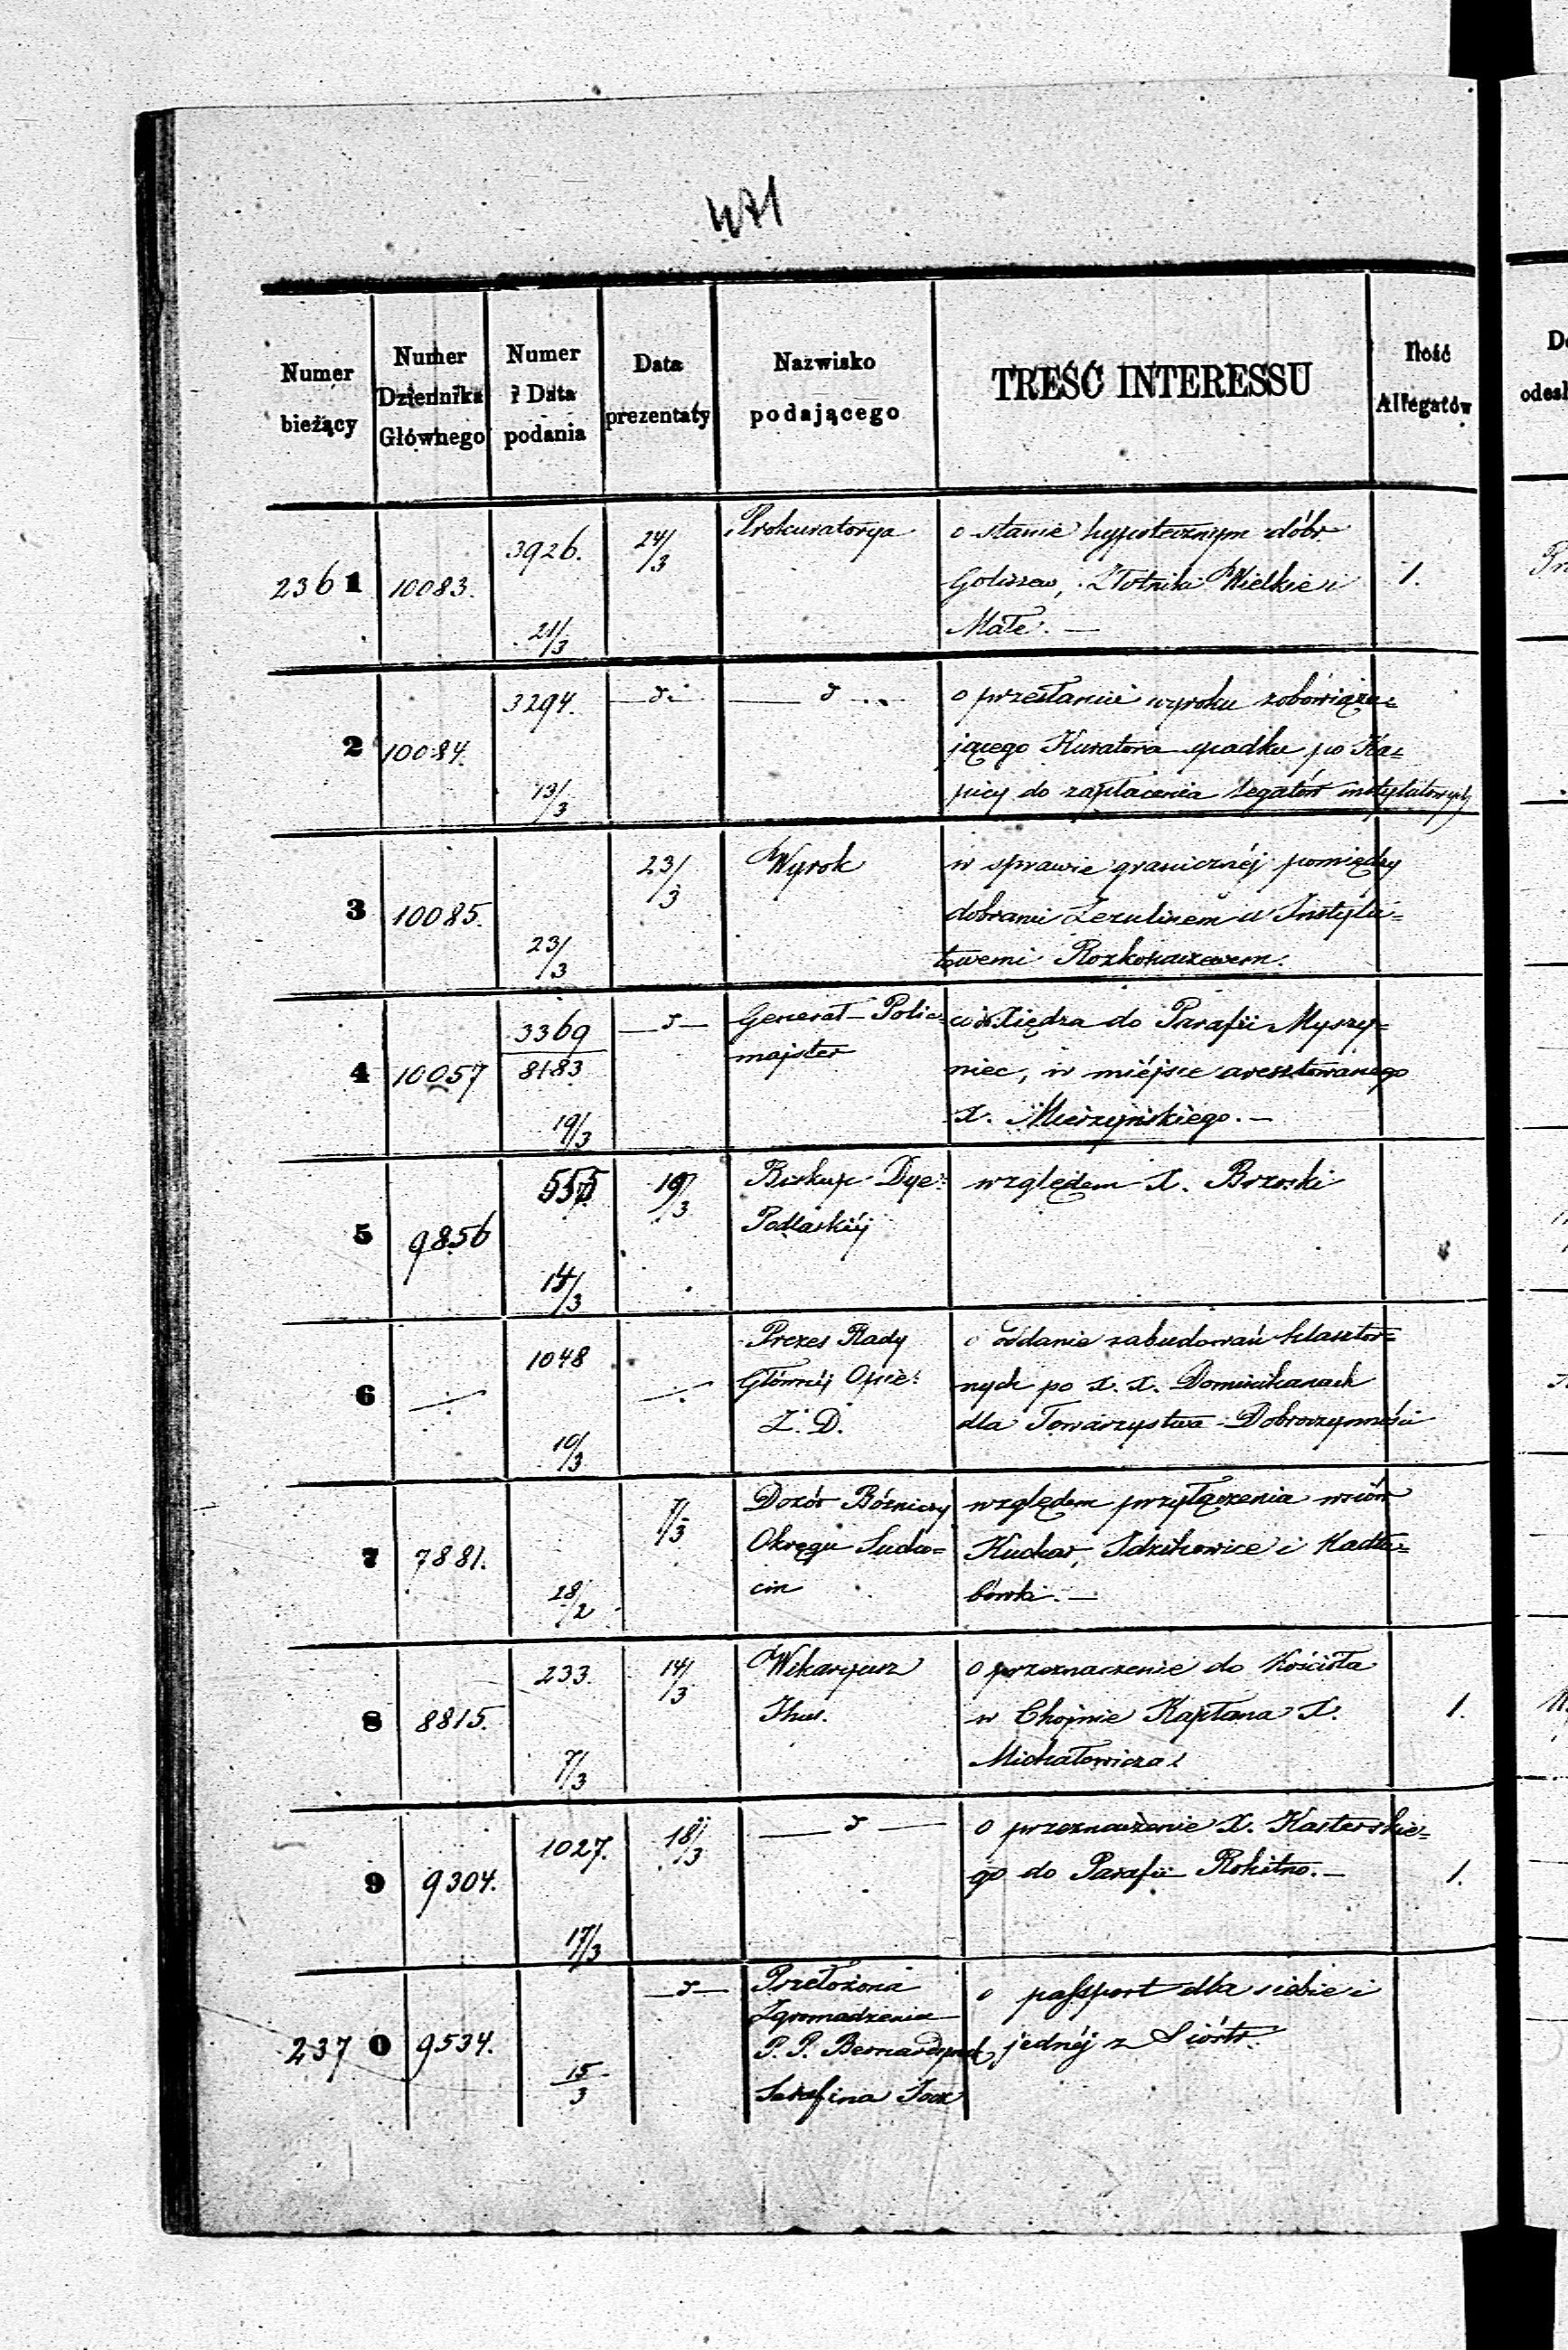 471
Numer bieżący
Numer Dziennika Głównego
Numer i Data podania
Data prezentaty
Nazwisko podającego
TREŚĆ INTERESSU
Ilość Allegatów
2361 10083. 3926. 21/3 24/3 Prokuratorya
o stanie hypotecznym dóbr
Goliszew, Złotniki Wielkie i
Małe. — 1.
2 10084. 3294. 13/3 — d: — — d —
o przesłanie wyroku zobowiązu=
jącego Kuratora spadku po Ka=
picy do zapłacenia legatów instytutowych
3 10085. 23/3 23/3 Wyrok
w sprawie granicznéj pomiędzy
dobrami a Instytu=
towemi
4 10057 3369 8183 19/3 — d — Generał-Polic=
majster
Xiędza do Parafii Myszy=
niec, w miéjsce aresztowanego
X. Mierzyńskiego. —
5 9856 555 14/3 19/3 Biskup Dye:
Podlaskiéj
względem X. Brzoski
6 —:— 1048 10/3 —:— Prezes Rady
Głównéj Opie:
Z. D.
o oddanie zabudowań klasztor=
nych po X. X. Dominikanach
dla Towarzystwa Dobroczynności
7 7881. 28/2 7/3 Dozór Bóżniczy
Okręgu
cin
względem przyłączenia wsiów
Kuchar, Idzikowice i Kadłu=
bówki. —
8 8815. 233. 7/3 14/3 Wikaryusz
o przeznaczenie do Kościoła
w Chojnie Kapłana X.
Michałowicza 1.
9 9304. 1027. 17/3 18/3 — d —
o przeznaczenie X. Kasterskie=
go do Parafii Rokitno. — 1.
2370 9534. 15/3 — d — Przełożona
Zgromadzenia
P. P. Bernardynek
Serafina
o passport dla siebie i
jednéj z Sióstr.